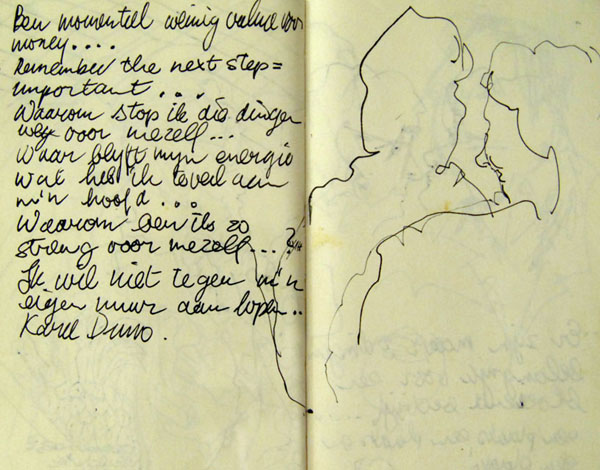 Ben momentiel weinig value voor
money....
Remember the next step =
important...
Waarom stop ik die dingen
weg voor mezelf...
Waar blyft mijn energie
wat heb ik teveel aan
m'n hoofd...
Waarom ben ik zo
streng voor mezelf....?
Ik wil niet tegen m'n
eigen muur aan lopen..
Karel